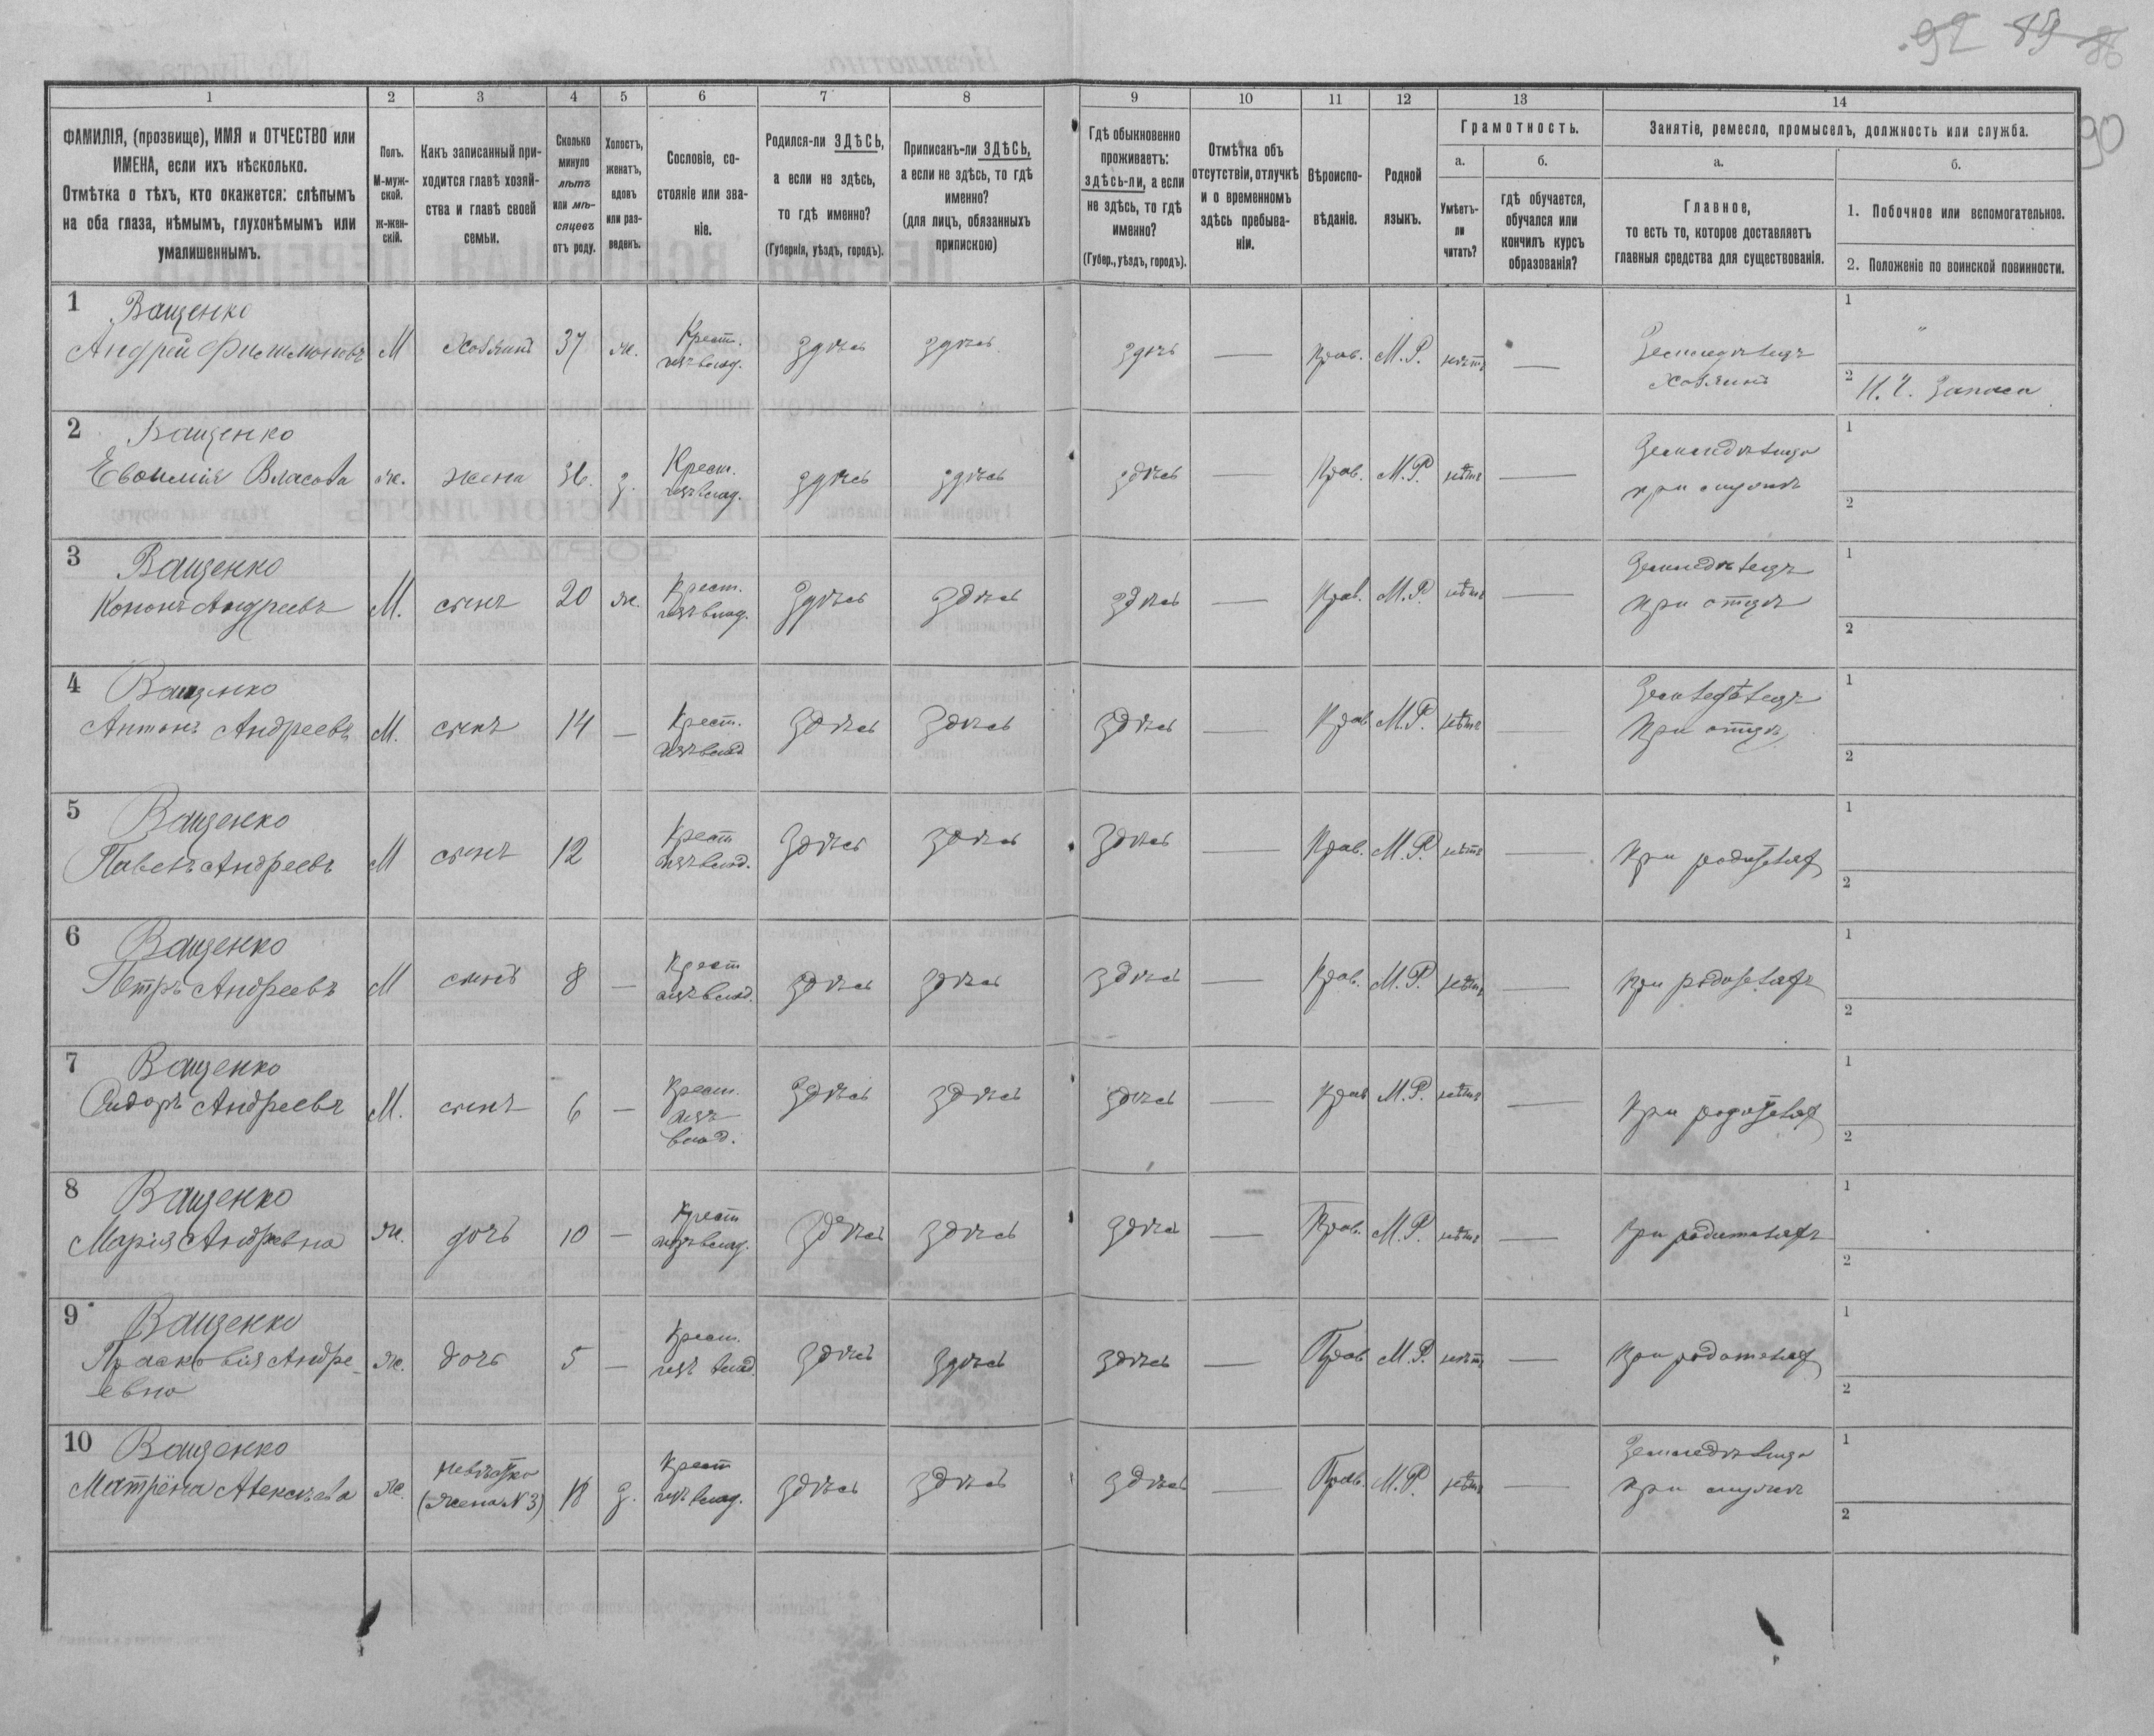 92 89 86
90
1 2 3 4 5 6 7 8 9 10 11 12 13 14
ФАМИЛІЯ, (прозвище), ИМЯ и ОТЧЕСТВО или
ИМЕНА, если ихъ нѣсколько.
Отмѣтка о тѣхъ, кто окажется: слѣпымъ
на оба глаза, нѣмымъ, глухонѣмымъ или
умалишеннымъ.
Полъ.
М-муж-
ской.
Ж-жен-
скій.
Какъ записанный при-
ходится главѣ хозяй-
ства и главѣ своей
семьи.
Сколько
минуло
лѣтъ
или мѣ-
сяцевъ
отъ роду.
Холостъ,
женатъ,
вдовъ
или раз-
веденъ.
Сословіе, со-
стояніе или зва-
ніе.
Родился-ли ЗДѢСЬ,
а если не здѣсь,
то гдѣ именно?
(Губернія, уѣздъ, городъ).
Приписанъ-ли ЗДѢСЬ,
а если не здѣсь, то гдѣ
именно?
(для лицъ, обязанныхъ
припискою)
Гдѣ обыкновенно
проживаетъ:
здѣсь-ли, а если
не здѣсь, то гдѣ
именно?
(Губер., уѣздъ, городъ).
Отмѣтка объ
отсутствіи, отлучкѣ
и о временномъ
здѣсь пребыва-
ніи.
Вѣроиспо-
вѣданіе.
Родной
языкъ.
Грамотность.
а.
Умѣетъ-
ли
читать?
б.
гдѣ обучается,
обучался или
кончилъ курсъ
образованія?
Занятіе, ремесло, промыселъ, должность или служба.
а.
Главное,
то есть то, которое доставляетъ
главныя средства для существованія.
б.
1. Побочное или вспомогательное.
2. Положеніе по воинской повинности.
1 Ващенко
Андрей Филимоновъ М Хозяинъ 37 ж. Крест. изъ влад. здѣсь здѣсь здѣсь — Прав. М.Р. нѣтъ — Земледѣлецъ
Хозяинъ
1 "
2 Н.Ч. Запаса
2 Ващенко
Евѳимія Власова ж. жена 36. з. Крест. изъ влад. здѣсь здѣсь здѣсь — Прав. М.Р. нѣтъ — Земледѣлица
при мужѣ
1
2
3 Ващенко
Кононъ Андреевъ М. сынъ 20 ж. Крест. изъ влад. здѣсь здѣсь здѣсь — Прав. М.Р. нѣтъ — Земледѣлецъ
при отцѣ
1
2
4 Ващенко
Антонъ Андреевъ М. сынъ 14 — Крест. изъ влад здѣсь здѣсь здѣсь — Прав М.Р. нѣтъ — Земледѣлецъ
При отцѣ
1
2
5 Ващенко
Павелъ Андреевъ М сынъ 12 Крест изъ влад. здѣсь здѣсь здѣсь — Прав. М.Р. нѣтъ — При родителях
1
2
6 Ващенко
Петръ Андреевъ М сынъ 8 — Крест изъ влад. здѣсь здѣсь здѣсь — Прав. М.Р. нѣтъ — При родителяхъ
1
2
7 Ващенко
Сидоръ Андреевъ М. сынъ 6 — Крест. изъ влад. здѣсь здѣсь здѣсь — Прав М.Р. нѣтъ — При родителях
1
2
8 Ващенко
Марія Андревна ж. дочь 10 — Крест изъ влад. здѣсь здѣсь здѣсь — Прав. М.Р. нѣтъ — При родителяхъ
1
2
9 Ващенко
Прасковія Андре-
евна ж. дочь 5 — Крест. изъ влад здѣсь здѣсь здѣсь — Прав М.Р. нѣтъ — При родителях
1
2
10 Ващенко
Матрёна Алексѣева ж. невѣстка
(жена N 3) 18 з. Крест изъ влад. здѣсь здѣсь здѣсь — Прав. М.Р. нѣтъ — Земледѣлица
при мужѣ
1
2